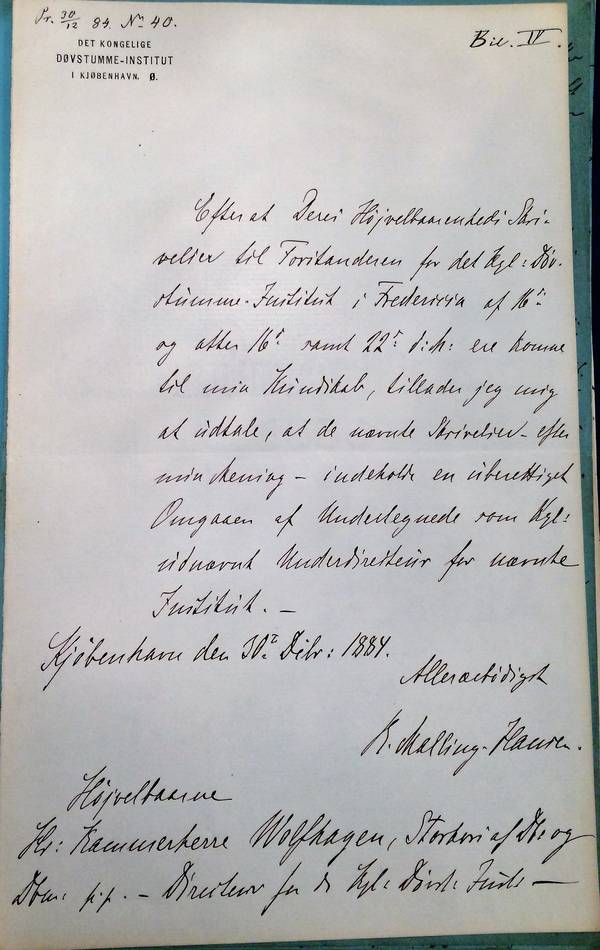 Pr. 30/12 84. No 40.
Bil. IV.
DET KONGELIGE
DØVSTUMME-INSTITUT
I KJØBENHAVN. Ø.
Efter at Deres Højvelbaarenheds Skri-
velser til Forstanderen for det Kgl: Døv-
stumme-Institut i Fredericia af 16de
og atter 16de samt 22de d: M: ere komne
til min Kundskab, tillader jeg mig
at udtale, at de nævnte Skrivelser – efter
min Mening – indeholde en uberettiget
Omgaaen af Undertegnede som Kgl:
udnævnt Underdirecteur for nævnte
Institut. –
Kjöbenhavn den 30te Dcbr: 1884.
Allerærbödigst
R. Malling-Hansen.
Højvelbaarne
Hr: Kammerherre Wolfhagen, Storkors af Dbr og
Dbm: p.p. – Directeur for de Kgl: Døvst: Instr –